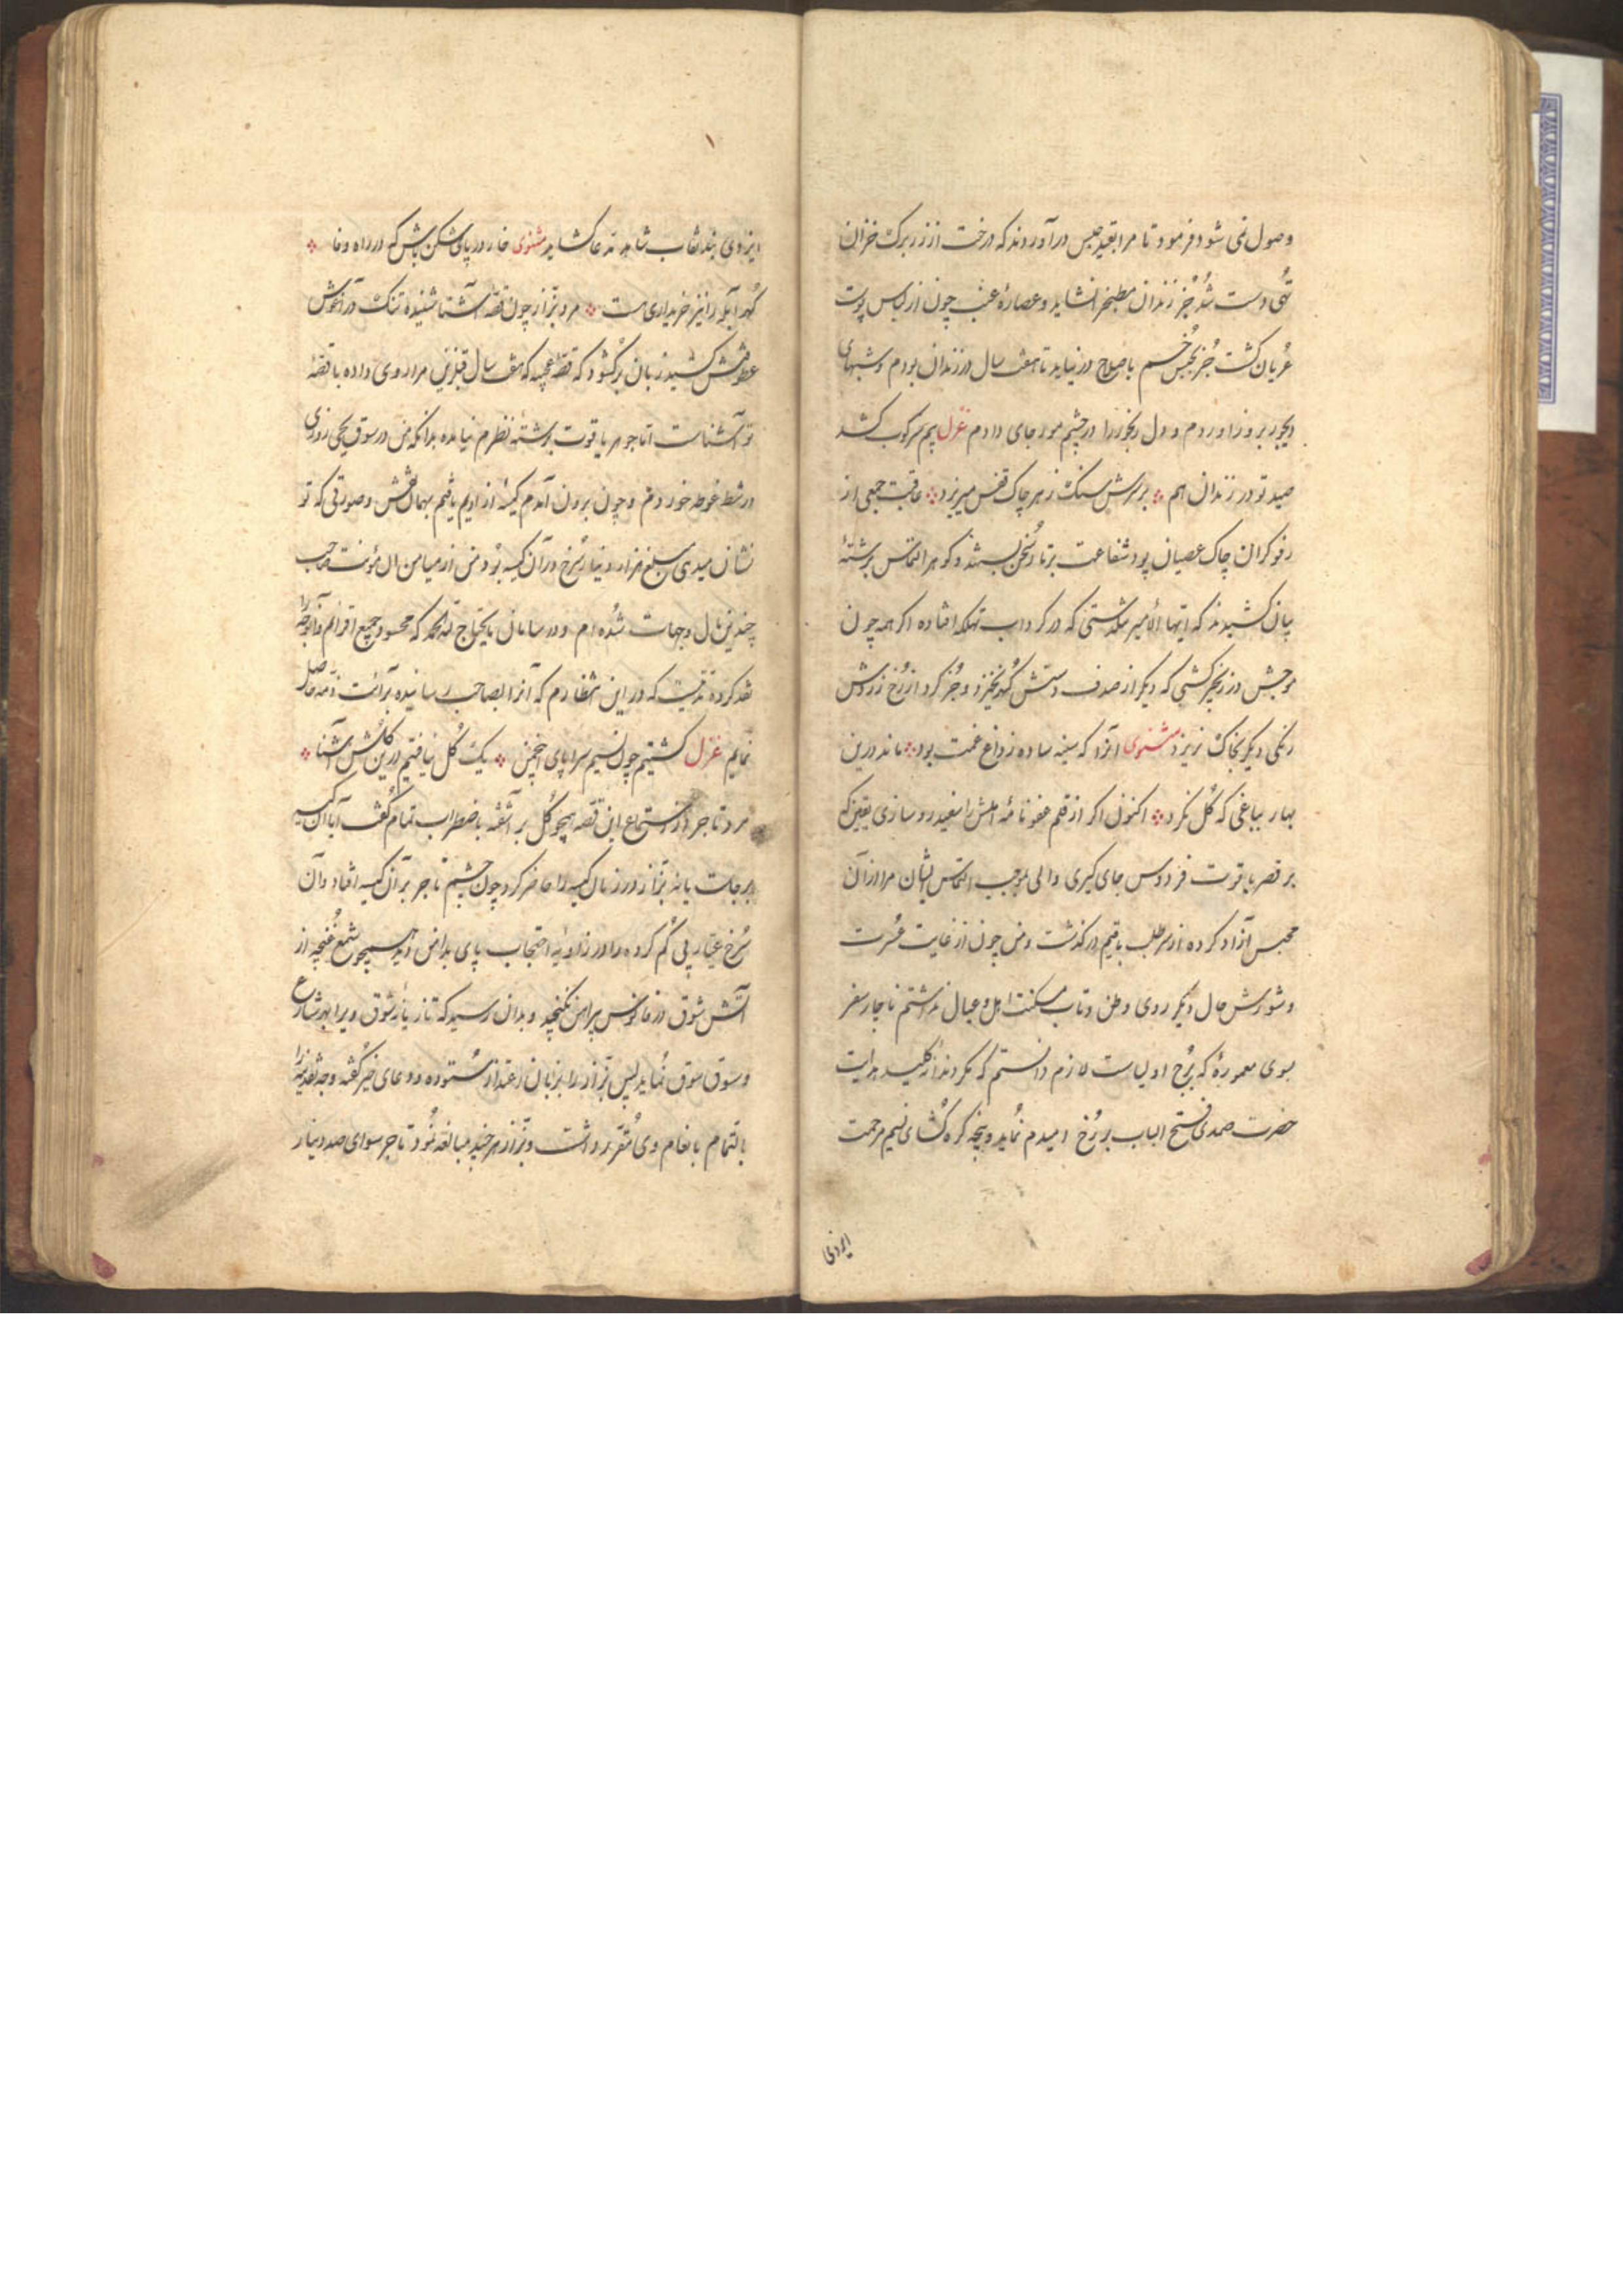 وصول نمی شود فرمود تا مرا بقید حبس درآوردند که درخت از زر برک خزان
تهی دست شد جز زندان مطبخ را نشاید و عصارهٔ عنب چون از لباس پوست
عریان کشت جز بحبس خم باصلاح در نیاید تا هفت سال در زندان بودم و شبهای
دیجور بروز آوردم و دل رنجور را در چشم مور جای دادم غزل سرکوب کشد
صید تو در زندان هم برسرش سنک ز هر چاک قفس میریزد عاقبت جمعی از
رفوکران چاک عصیان پود شفاعت بر تار سخن بستند و کوهر التماس برشتهٔ
بیان کشیدند که ایها الامیر شکستی که در کرداب تهلکه افتاده اکر همه چون
موجش در زنجیر کشی که دیکر از صدف دستش کهر نخیزد و جز کرد از رخ زردش
رنکی دیکر بخاک نریزد مثنوی آنرا که سینه ساده ز داغ غمت بود ماند درین
بهار بباغی که کل نکرد اکنون اکر از قلم عفو نامهٔ املش را سفیدرو سازی یقین که
بر قصر یاقوت فردوس جای کیری والی بموجب التماس ایشان مرا از آن
محبس آزاد کرده از سر طلب باقیم درکذشت و من چون از غایت عسرت
و شورش حال دیکر روی وطن و تاب مسکنت اهل و عیال نداشتم ناچار سفر
بسوی معمورهٔ که برج اولیاست لازم دانستم که مکر دندانهٔ کلید هدایت
حضرت صمدی فتح الباب بر رخ امیدم نماید و پنجه کره کشای نسیم مرحمت
ایزدی
ایزدی بند نقاب شاهد مدعا کشاید مثنوی خار در پای شکن باش که در راه وفا
کهر آبله را نیز خریداری هست مرد بزاز چون قصه آشنا شنیده تنک در آغوش
عطوفتش کشید زبان برکشود که قصهٔ عجیبه که هفت سال قبل ازین مرا روی داده با قصهٔ
تو آشناست اما جوهر یاقوت برشتهٔ نظرم نیامده بدانکه من در سوق یحیی روزی
در شط غوطه خوردم و چون برون آمدم کیسهٔ از ادیم یافتم بهمان نقش و صورتی که تو
نشان میدی مبلغ هزار دینار سرخ در آن کیسه بود من از میامن آن مؤنت صاحب
چندین مال و جهات شده ام و در سامان مایحتاج تهٔ محمد که محسود جمیع اقرانم و آن وجه را
نقد کرده مدتیست که در این انتظارم که آنرا بصاحب رسانیده برائت ذمه حاصل
نمایم غزل کشتیم چون نسیم سراپای این چمن یک کل نیافتیم درین کلشن آشنا
مرد تاجر از استماع این قصه همچو کل بر آشفته باضطراب تمام کفت آیا آن کیسه
برجاست یا نه بزاز در زمان کیسه را حاضر کرد چون چشم تاجر بر آن کیسه افتاد و آن
سرخ عیار پی کم کرده را در زاویهٔ احتجاب پای بدامن دید همچو شمع غنچه از
آتش شوق در فانوس پیراهن نکنجید و بدان رسید که تازیانه شوق ویرا بهر شارع
و سوق سوق نماید پس بزاز را بزبان اعتذار ستوده و دعای خیر کفته وجه نقدینه را
بالتمام بانعام وی مقرر داشت و بزاز هرچند مبالغه نمود تاجر سوای صد دینار